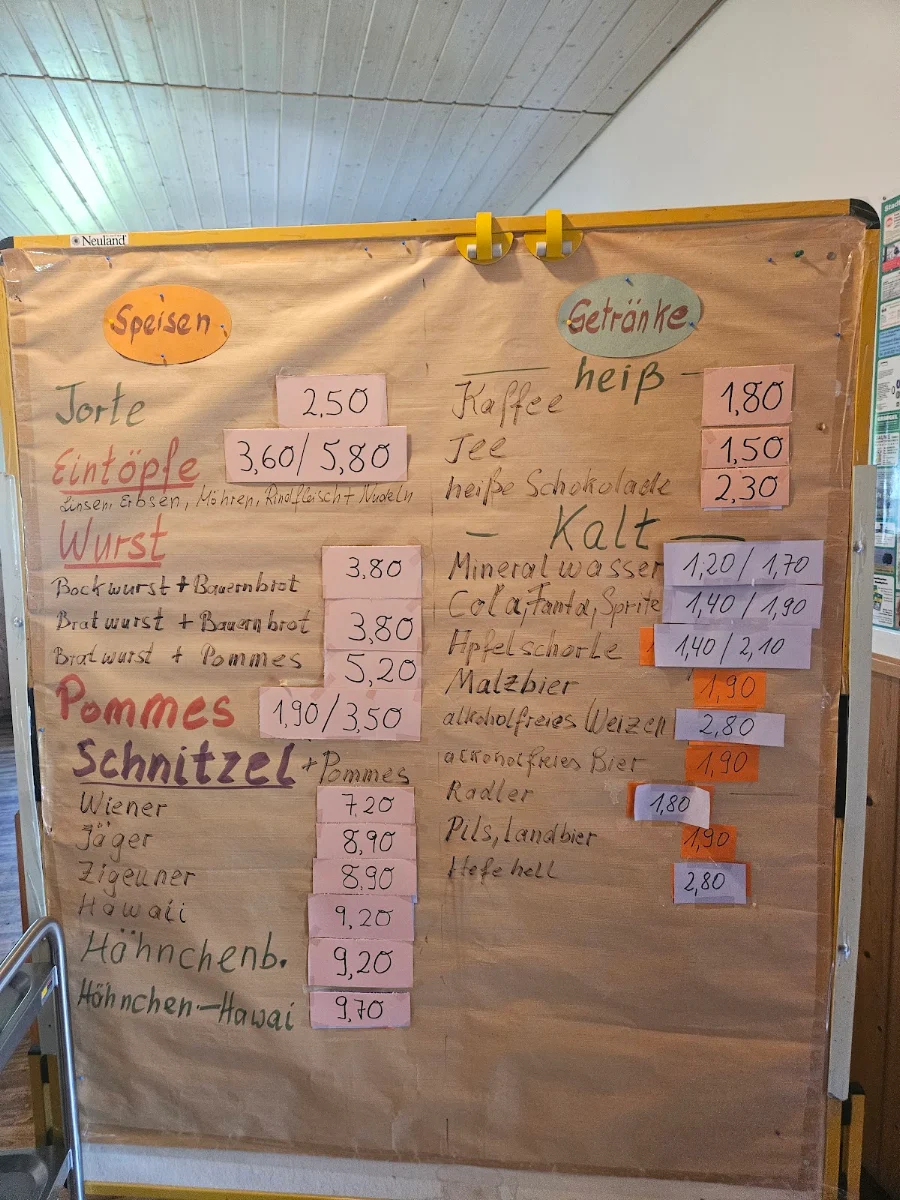 Neuland
Speisen
Torte 2,50
Eintöpfe 3,60/5,80
Linsen, Erbsen, Möhren, Rindfleisch + Nudeln
Wurst
Bockwurst + Bauernbrot 3,80
Bratwurst + Bauernbrot 3,80
Bratwurst + Pommes 5,20
Pommes 1,90/3,50
Schnitzel + Pommes
Wiener 7,20
Jäger 8,90
Zigeuner 8,90
Hawaii 9,20
Hähnchenb. 9,20
Hähnchen-Hawai 9,70
Getränke
heiß
Kaffee 1,80
Tee 1,50
heiße Schokolade 2,30
Kalt
Mineralwasser 1,20/1,70
Cola, Fanta, Sprite 1,40/1,90
Apfelschorle 1,40/2,10
Malzbier 1,90
alkoholfreies Weizen 2,80
alkoholfreies Bier 1,90
Radler 1,80
Pils, Landbier 1,90
Hefe hell 2,80